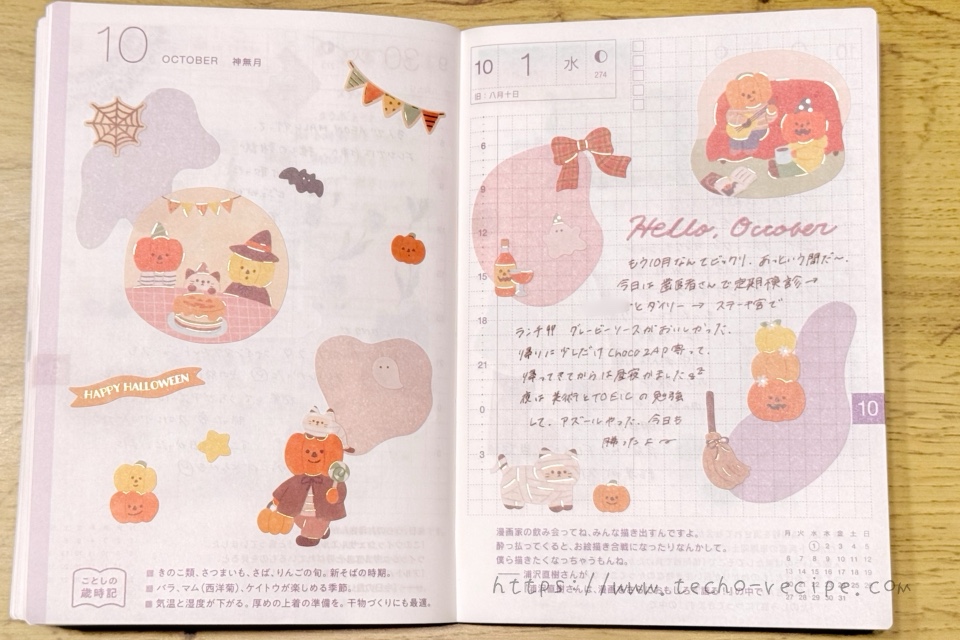 10 OCTOBER 神無月
HAPPY HALLOWEEN
ことしの
歳時記
■きのこ類、さつまいも、さば、りんごの旬。新そばの時期。
■バラ、マム(西洋菊)、ケイトウが楽しめる季節。
■気温と湿度が下がる。厚めの上着の準備を。干物づくりにも最適。
10 1 水
274
旧:八月十日
6
9
12
15
18
21
0
3
Hello, October
もう10月なんてビックリ。あっという間だ〜。
今日は歯医者さんで定期検診→
→ ステーキ宮で
ランチ グレービーソースがおいしかった。
帰りに少しだけchocoZAP寄って、
帰ってきてからは昼寝かました
夜は美術とTOEICの勉強
して、アズールやった。今日も
勝ったよ〜
10
漫画家の飲み会ってね、みんな描き出すんですよ。
酔っ払ってくると、お絵描き合戦になったりなんかして。
僕ら描きたくなっちゃうもんね。
——浦沢直樹さんが
月 火 水 木 金 土 日
1 2 3 4 5
6 7 8 9 10 11 12
https://www.techo-recipe.com